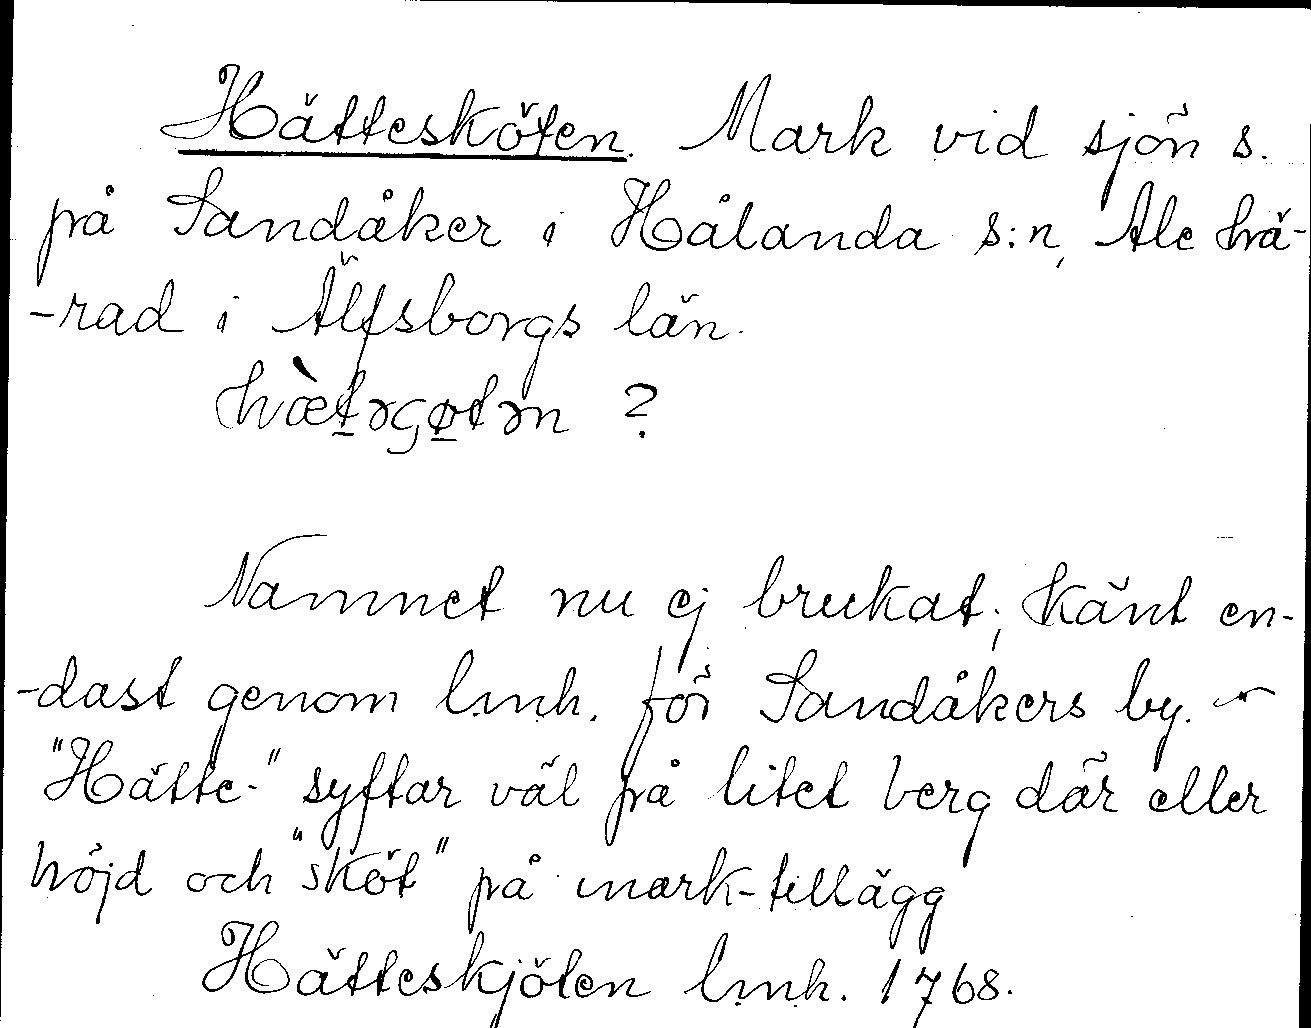 Hättesköten. Mark vid sjön s.
på Sandåker i Hålanda s:n, Ale hä-
-rad i Älfsborgs län.
hæ̀təɢøtən ?
Namnet nu ej brukat; känt en-
-dast genom lmh. för Sandåkers by. -
"Hätte-" syftar väl på litet berg där eller
höjd och "sköt" på mark-tillägg
Hätteskjöten lmh. 1768.